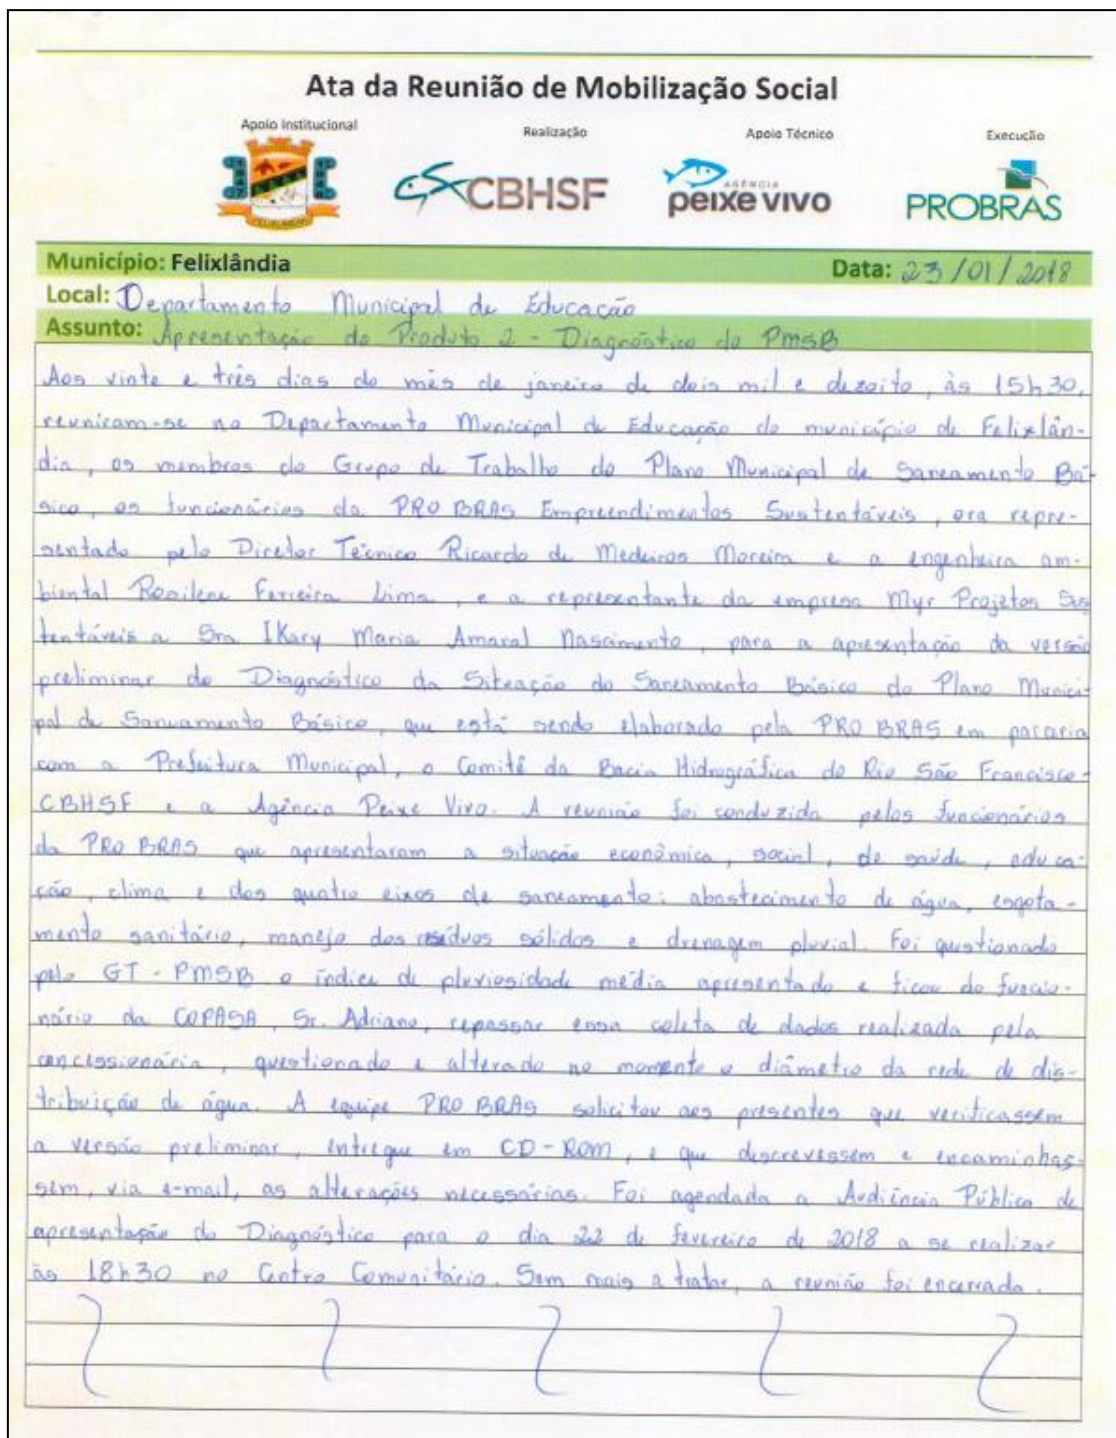 Ata da Reunião de Mobilização Social
Apoio Institucional Realização Apoio Técnico Execução
CBHSF AGÊNCIA peixe vivo PROBRAS
Município: Felixlândia Data: 23/01/2018
Local: Departamento Municipal de Educação
Assunto: Apresentação do Produto 2 - Diagnóstico do PMSB
Aos vinte e três dias do mês de janeiro de dois mil e dezoito, às 15h30,
reunicam-se no Departamento Municipal de Educação do município de Felixlân-
dia, os membros do Grupo de Trabalho do Plano Municipal de Saneamento Bá-
sico, os funcionários da PRO BRAS Empreendimentos Sustentáveis, ora repre-
sentado pelo Diretor Técnico Ricardo de Medeiros Moreira e a engenheira am-
biental Rosilene Ferreira Lima, e a representante da empresa Myr Projetos Sus
tentáveis a Sra IKary Maria Amaral Nascimento, para a apresentação da versão
preliminar do Diagnóstico da Situação do Saneamento Básico do Plano Munici-
pal de Saneamento Básico, que está sendo elaborado pela PRO BRAS em parceria
com a Prefeitura Municipal, o Comitê da Bacia Hidrográfica do Rio São Francisco -
CBHSF e a Agência Peixe Vivo. A reunião foi conduzida pelos funcionários
da PRO BRAS que apresentaram a situação econômica, social, de saúde, educa-
ção, clima e dos quatro eixos de saneamento: abastecimento de água, esgota-
mento sanitário, manejo dos resíduos sólidos e drenagem pluvial. Foi questionado
pelo GT - PMSB o índice de pluviosidade média apresentado e ficou do funcio-
nário da COPASA, Sr. Adriano, repassar essa coleta de dados realizada pela
concessionária, questionado e alterado no momento o diâmetro da rede de dis-
tribuição de água. A equipe PRO BRAS solicitou aos presentes que verificassem
a versão preliminar, entregue em CD-ROM, e que descrevessem e encaminhas-
sem, via e-mail, as alterações necessárias. Foi agendada a Audiência Pública de
apresentação do Diagnóstico para o dia 22 de fevereiro de 2018 a se realizar
às 18h30 no Centro Comunitário. Sem mais a tratar, a reunião foi encerrada.